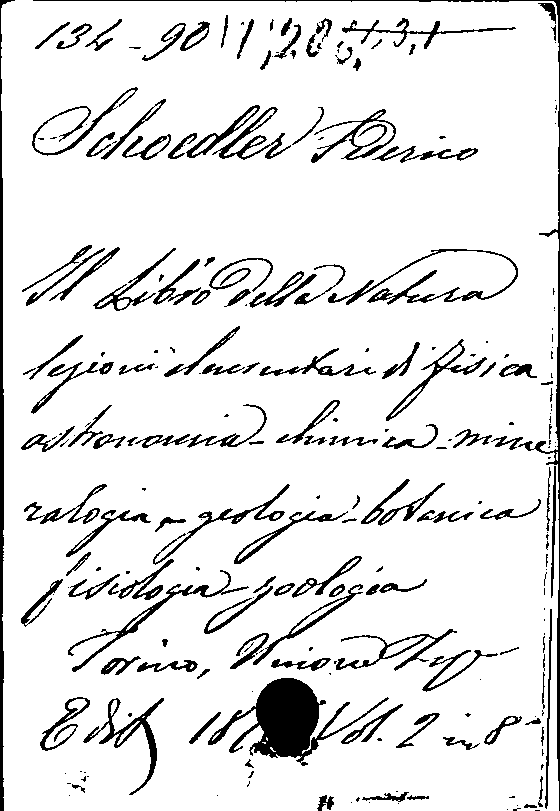 134-90
Schoedler Federico
Il Libro della Natura
lezioni elementari di fisica-
astronomia-chimica-mine
ralogia,- geologia-botanica
fisiologia-zoologia
Torino, Unione Tip
Edit 18 Vol. 2 in 8°